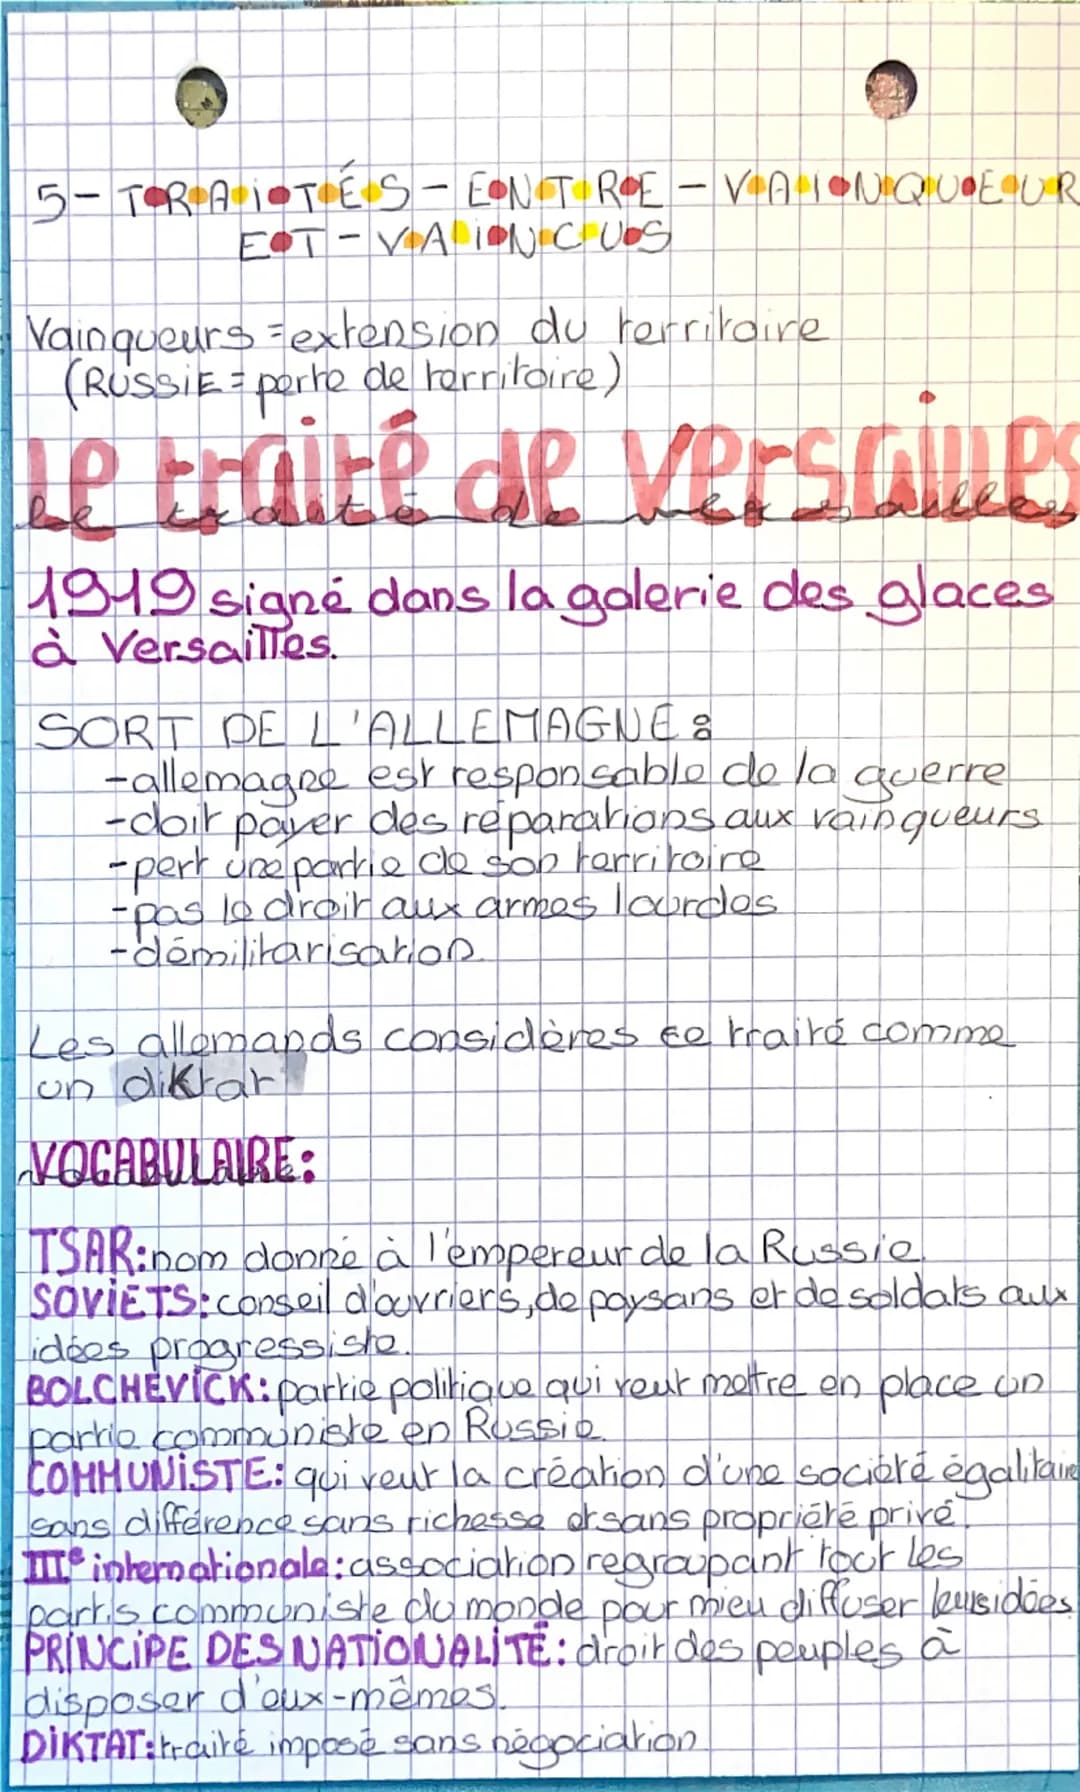 5- TRAITÉS - ENTRE - VAINQUEUR
ET - VAINCUS
Vainqueurs = extension du territoire
(RUSSiE = perte de territoire)
Le traité de versailles
Le traité de versailles
1919 signé dans la galerie des glaces
à Versailles.
SORT DE L'ALLEMAGNE :
-allemagne est responsable de la guerre
-doit payer des réparations aux vainqueurs
-pert une partie de son territoire
-pas le droit aux armes lourdes
-démilitarisation
Les allemands considères ce traité comme
un diktat
VOCABULAIRE:
TSAR: nom donné à l'empereur de la Russie.
SOViETS: conseil d'ouvriers, de paysans et de soldats aux
idées progressiste.
BOLCHÉViCK: partie politique qui veut mettre en place un
partie communiste en Russie
COMMUNiSTE: qui veut la création d'une société égalitaire
sans différence sans richesse et sans propriété privé.
IIIe internationale: association regroupant tout les
partis communiste du monde pour mieu diffuser leurs idées
PRiNCiPE DES NATiONALiTÉ: droit des peuples à
disposer d'eux-mêmes.
DiKTAT: traité imposé sans négociation